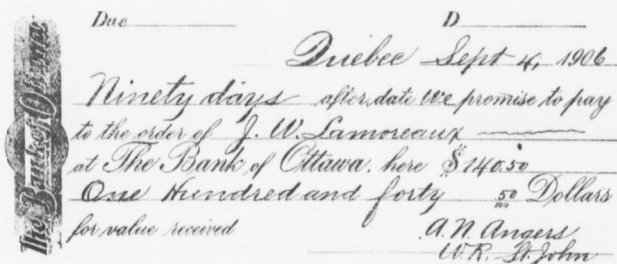 Due D
Quebec Sept 4, 1906
Ninety days after date We promise to pay
to the order of J. W. Lamoreaux
at The Bank of Ottawa, here $140.50
One Hundred and forty 50/100 Dollars
for value received A. N. Angers
W. R. St. John
The Bank of Ottawa